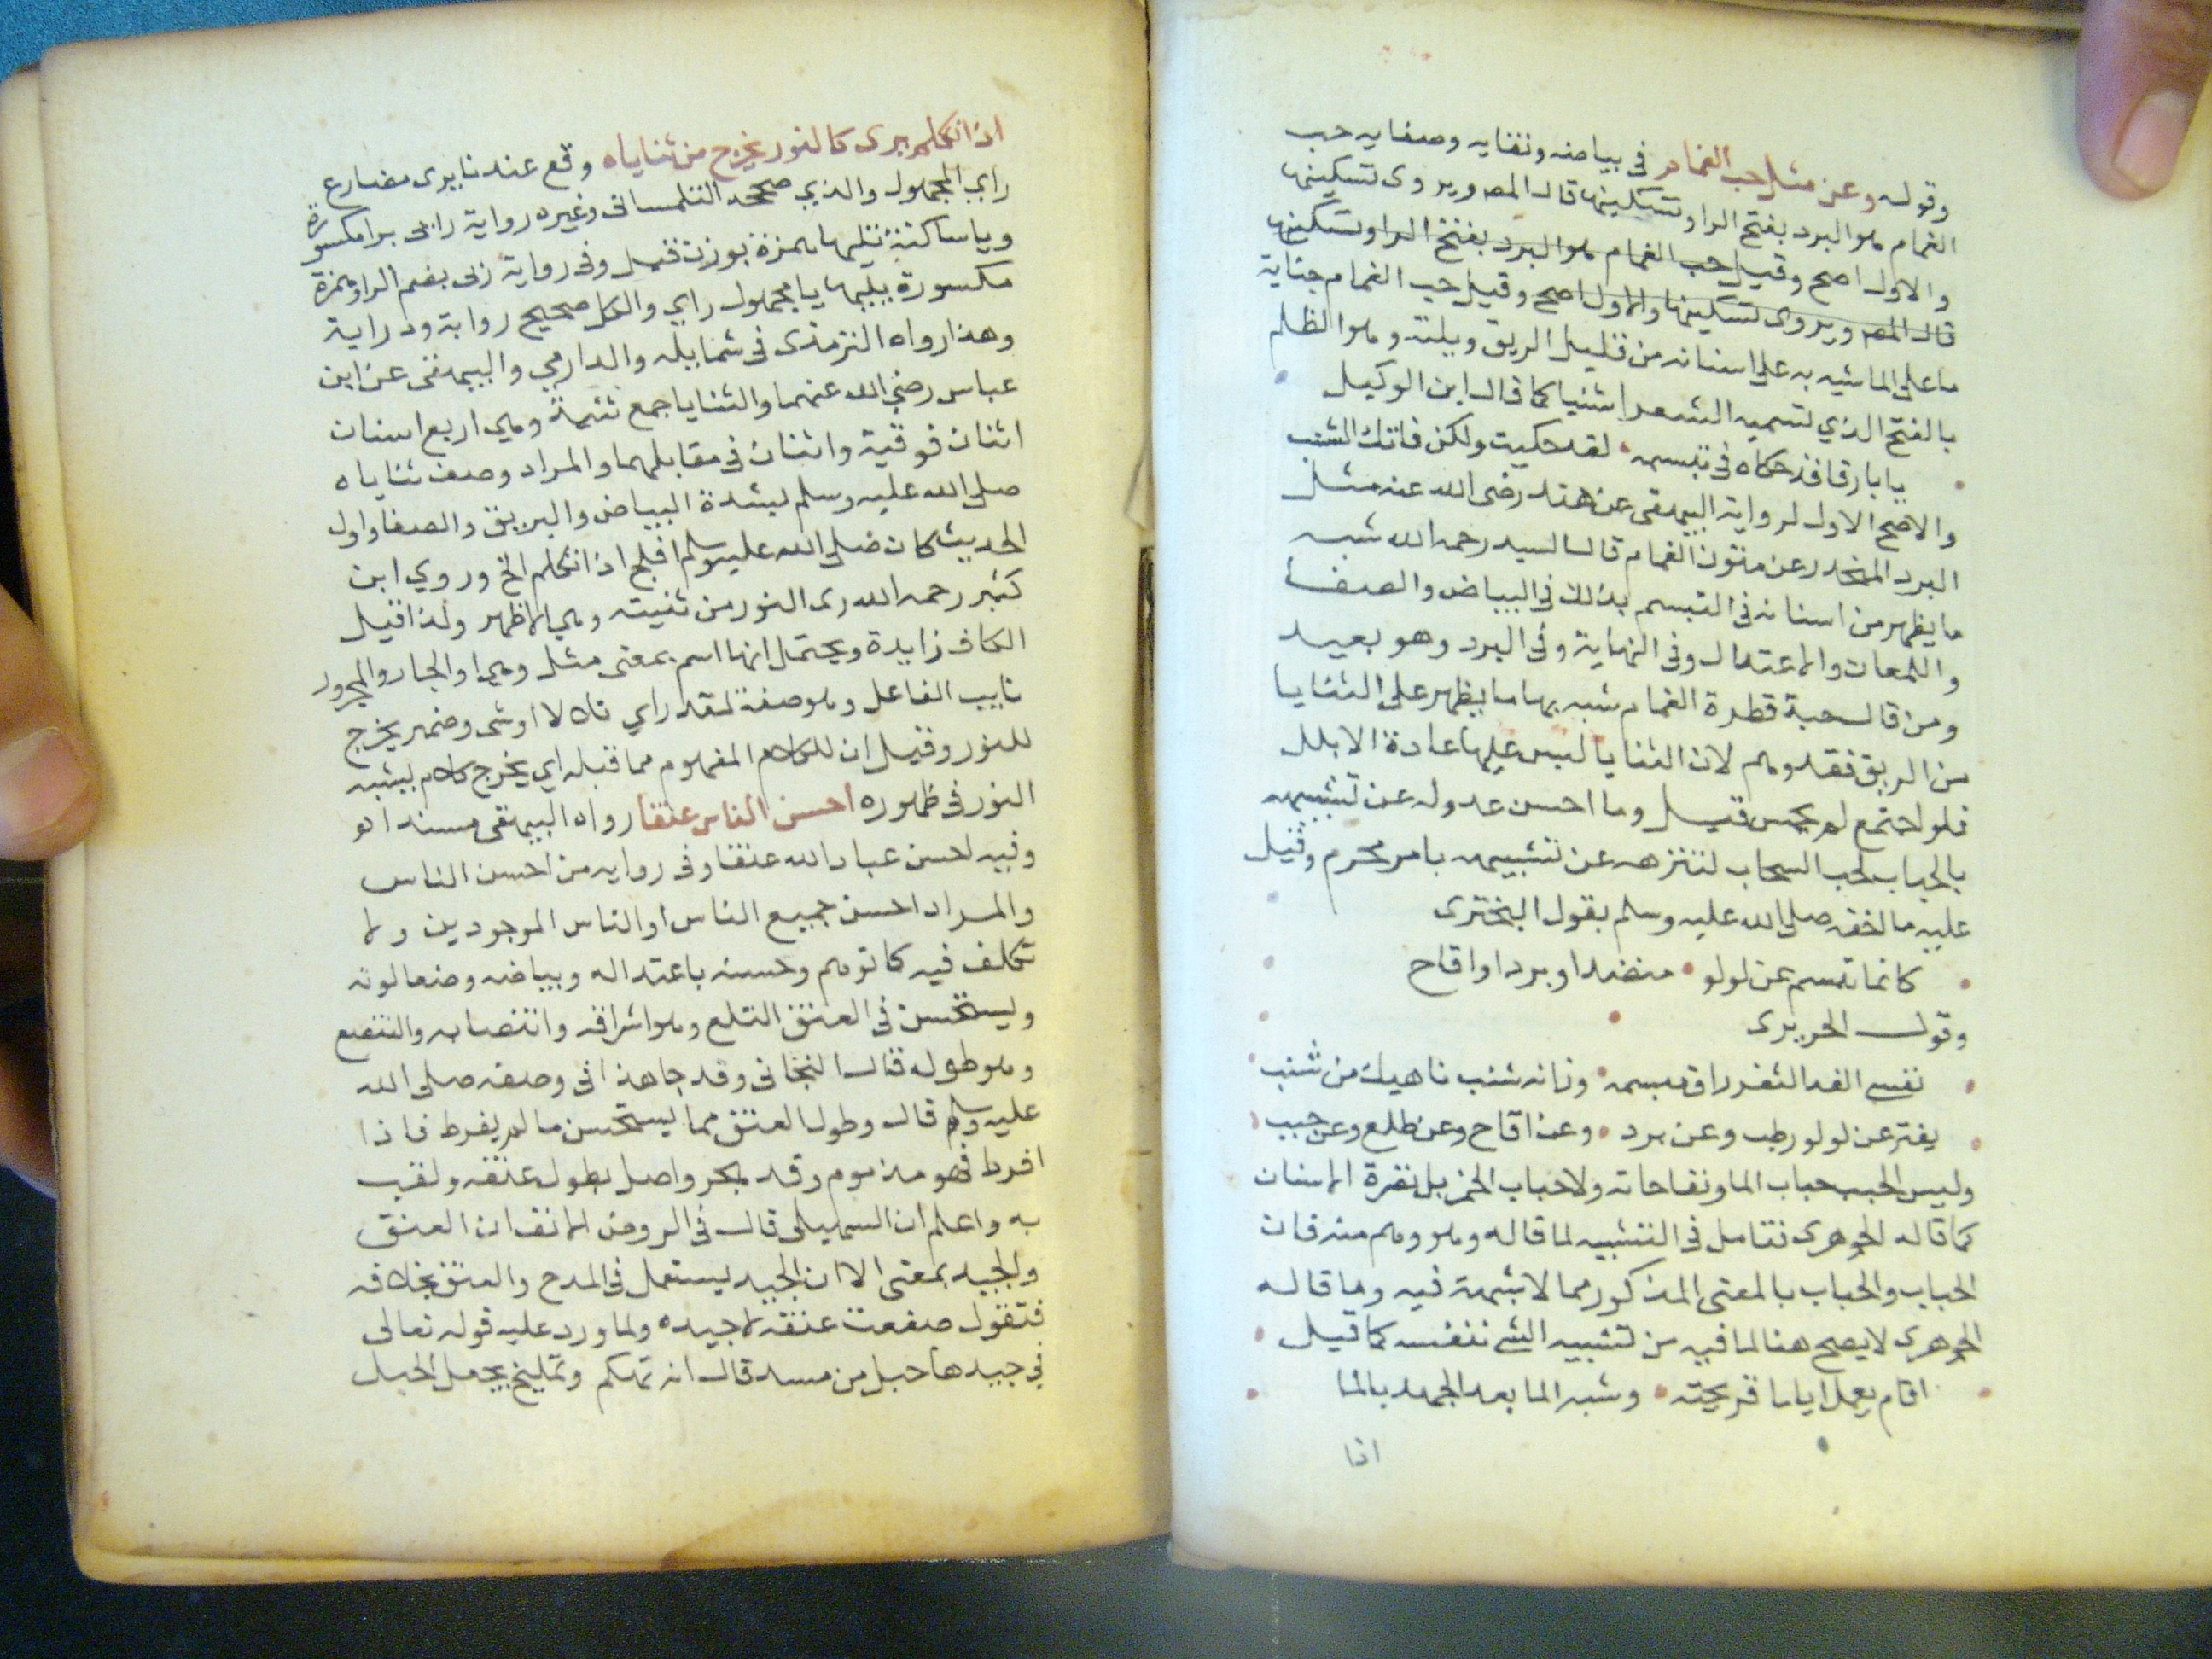 وقوله وعن مثل حب الغمام في بياضه ونقايه وصفايه حب
الغمام هو البرد بفتح الرا وتسكينها قال المص ويروى تسكينها
والاول اصح وقيل حب الغمام هو البرد بفتح الرا وتسكينها
قال المص ويروى تسكينها والاول اصح وقيل حب الغمام جناية
ما على الما شبه به على اسنانه من قليل الريق وبلته وهو الظلم
بالفتح الذي تسميه الشعرا شنبا كما قال ابن الوكيل
يا بارقا قد حكاه في تبسمه لقد حكيت ولكن فاتك الشنب
والاصح الاول لرواية البيهقى عن هند رضى الله عنه مثل
البرد المنحدر عن متون الغمام قال السيد رحمه الله شبه
ما يظهر من اسنانه في التبسم بذلك في البياض والصفا
واللمعان والاعتدال وفى النهاية وفى البرد وهو بعيد
ومن قال حبة قطرة الغمام شبه بها ما يظهر على الثنايا
من الريق فقد وهم لان الثنايا ليس عليها عادة الا بلل
فلو اجتمع لم يحسن قيل وما احسن عدوله عن تشبيهه
بالحباب لحب السحاب لتنزهه عن تشبيهه بامر محرم وقيل
عليه مالخقه صلى الله عليه وسلم بقول البخترى
كانما تبسم عن لولو منضدا وبرد او اقاح
وقول الحريرى
نفسى الفدا لثغر راق مبسمه وزانه شنب ناهيك من شنب
يفتر عن لولو رطب وعن برد وعن اقاح وعن طلع وعن حبب
وليس الحبب حباب الما ونفاحاته ولا حباب الخمر بل نقرة الاسنان
كما قاله الجوهرى نتامل في التشبيه لما قاله وهو وهم منه فان
الحباب والحباب بالمعنى المذكور مما لا شبهة فيه وما قاله
الجوهرى لا يصح هنا لما فيه من تشبيه الشي بنفسه كما قيل
اقام يعمل اياما قريحته وشبه الما بعد الجهد بالما
اذا
اذا تكلم يرى كالنور يخرج من ثناياه وقع عندنا يرى مضارع
راي المجهول والذي صححه التلمسانى وغيره رواية راى برا مكسورة
ويا ساكنة تليها همزة بوزن قيل وفى رواية رى بضم الرا وهمزة
مكسورة يليها يا مجهول راي والكل صحيح رواية ودراية
وهذا رواه الترمذى في شمايله والدارمي والبيهقى عن ابن
عباس رضي الله عنهما والثنايا جمع ثنية وهي اربع اسنان
اثنان فوقية واثنان في مقابلهما والمراد وصف ثناياه
صلى الله عليه وسلم بشدة البياض والبريق والصفا واول
الحديث كان صلى الله عليه وسلم افلج اذا تكلم الخ وروي ابن
كثير رحمه الله رى النور من ثنيته وهي الاظهر ولذا قيل
الكاف زايدة ويحتمل انها اسم بمعنى مثل وهي او الجار والمجرور
نايب الفاعل وهو صفة لمقدر اي تلالا اوشى وضمير يخرج
للنور وقيل ان للكلام المفهوم مما قبله اي يخرج كلام يشبه
النور في ظهوره احسن الناس عنقا رواه البيهقى مسندا هو
وفيه احسن عباد الله عنقا وفى رواية من احسن الناس
والمراد احسن جميع الناس او الناس الموجودين ولا
تكلف فيه كما توهم وحسنه باعتداله وبياضه وصفا لونه
ويستحسن في العنق التلع وهو اشراقه وانتصابه والتتبع
وهو طوله قال التجانى وقد جا هذا في وصفه صلى الله
عليه وسلم قال وطول العنق مما يستحسن ما لم يفرط فاذا
افرط فهو مذموم وقد هجر واصل بطول عنقه ولقب
به واعلم ان السهيلى قال في الروض الانف ان العنق
والجيد بمعنى الا ان الجيد يستعمل في المدح والعنق بخلافه
فتقول صفعت عنقه لا جيده ولما ورد عليه قوله تعالى
في جيدها حبل من مسد قال انه تهكم وتمليح بجعل الحبل